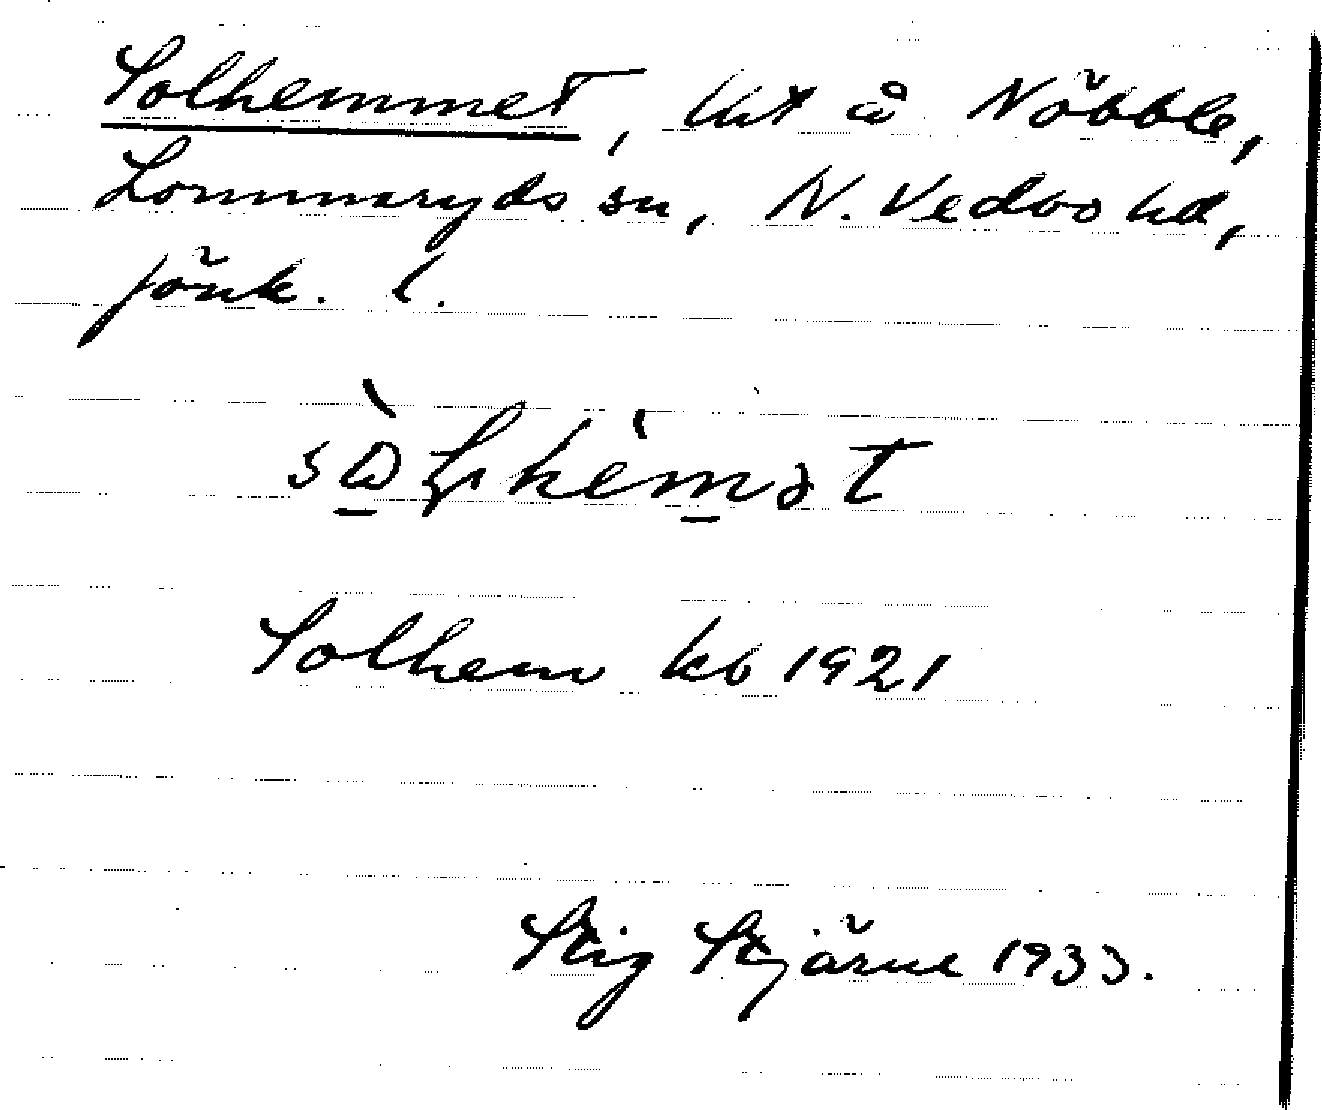 Solhemmet, lht å Nöbble,
Lommaryds sn, N. Vedbo hd,
Jönk. l.
Solhem kb 1921
Stig Stjärne 1933.